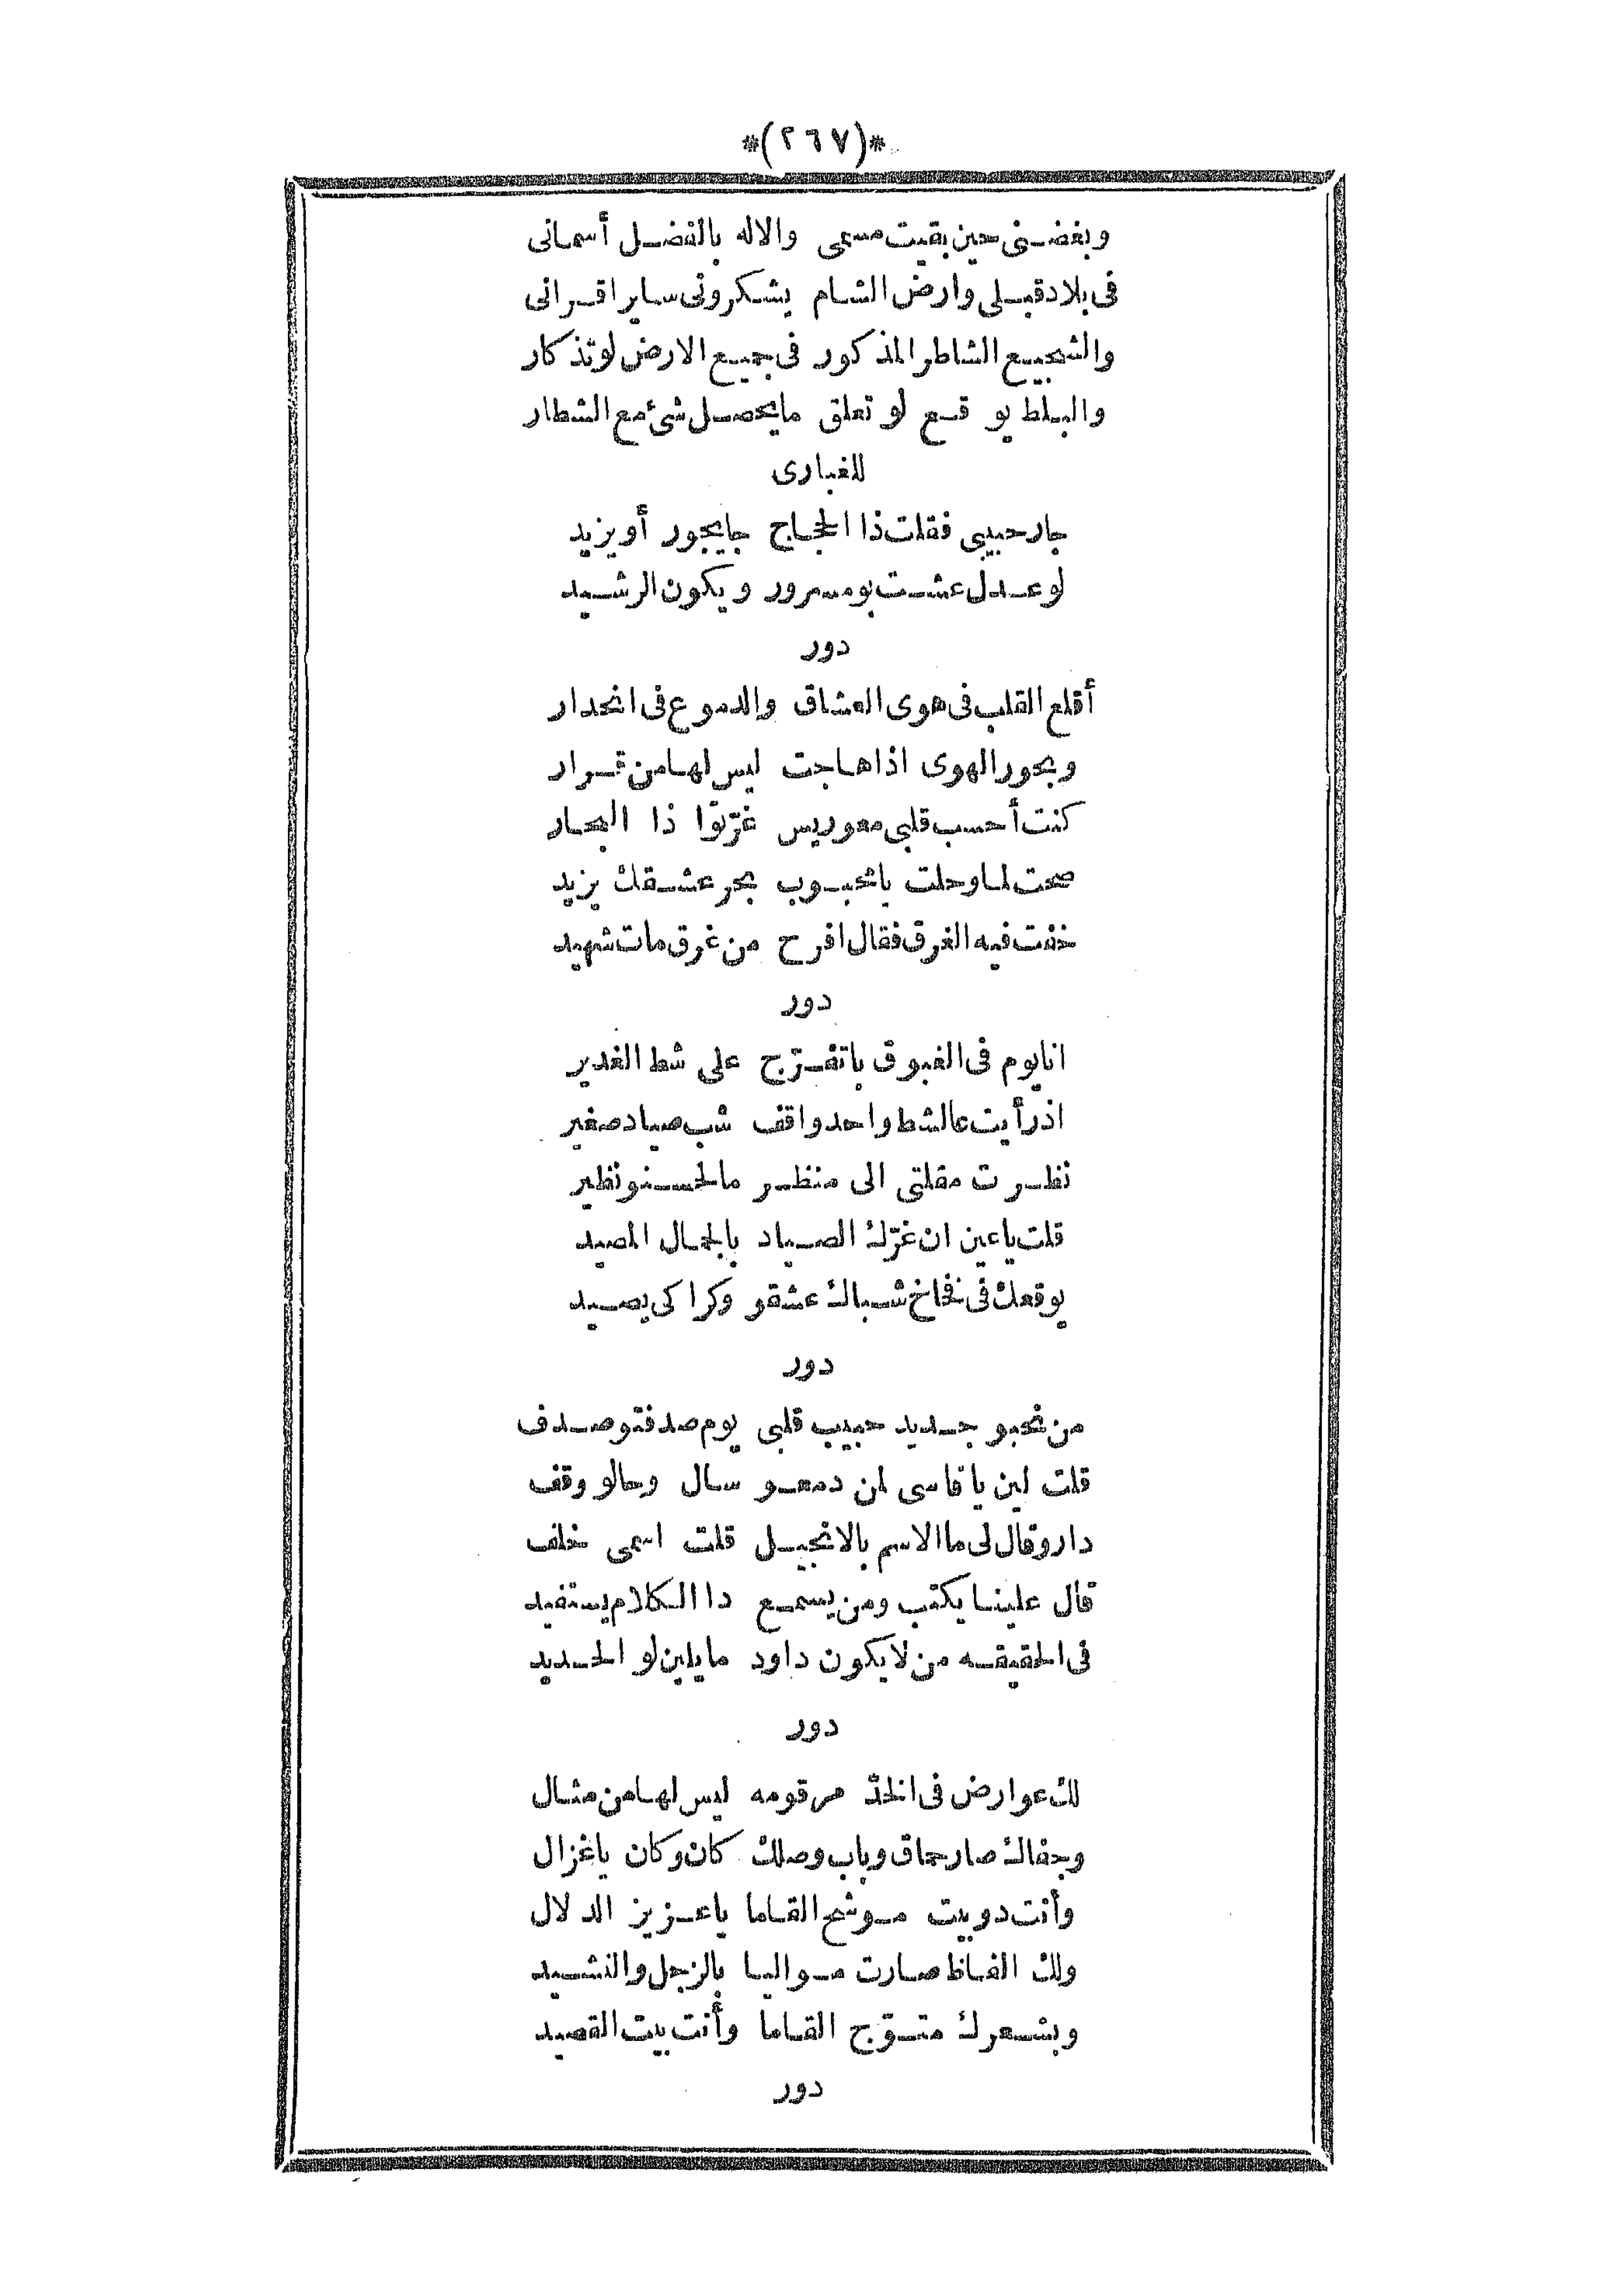 *(٢٦٧)*
وبغضنى حين بقيت مسمى والاله بالفضل أسمانى
فى بلاد قبلى وارض الشام يشكرونى ساير اقرانى
والشجيع الشاطر المذكور فى جميع الارض لو تذكار
والبلط يو قع لو تعلق ما يحصل شئ مع الشطار
للغبارى
جار حبيبى فقلت ذا الحجاج جا يجور أو يزيد
لو عدل عشت بو مسرور ويكون الرشيد
دور
أقلع القلب فى هوى العشاق والدموع فى انحدار
وبحور الهوى اذا هاجت ليس لها من قرار
كنت أحسب قلبى معو ريس غرّقوا ذا البحار
صحت لما وحلت يا محبوب بحر عشقك يزيد
خفت فيه الغرق فقال افرح من غرق مات شهيد
دور
انا يوم فى الغبوق باتفرّج على شط الغدير
اذ رأيت عالشط واحد واقف شب صياد صغير
نظرت مقلتى الى منظر ما لحسنو نظير
قلت يا عين ان غرّك الصياد بالجمال المصيد
يوقعك فى نخاخ شباك عشقو وكراكى يصيد
دور
من نحبو جديد حبيب قلبى يوم صدفتو صدف
قلت لين يا قاسى لمن دمعو سال وحالو وقف
دار وقال لى ما الاسم بالانجيل قلت اسمى خلف
قال علينا يكتب ومن يسمع دا الكلام يستفيد
فى الحقيقه من لا يكون داود ما يلين لو الحديد
دور
لك عوارض فى الخدّ مرقومه ليس لها من مثال
وجفاك صار حماق وباب وصلك كان وكان يا غزال
وأنت دوبيت موشح القاما يا عزيز الدلال
ولك الفاظ صارت مواليا بالزجل والنشيد
وبشعرك متوّج القاما وأنت بيت القصيد
دور